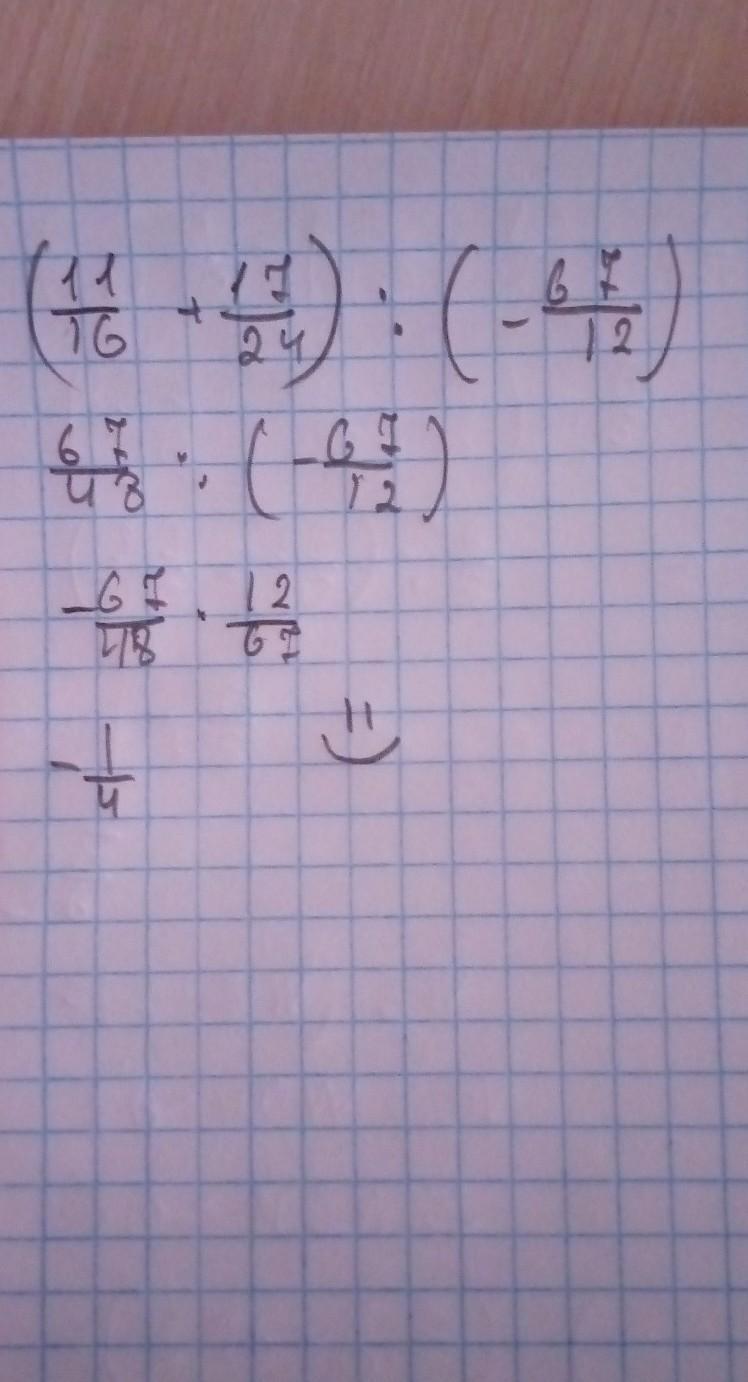 (11/16 + 17/24) : (-67/12)
67/48 : (-67/12)
-67/48 · 12/67
-1/4